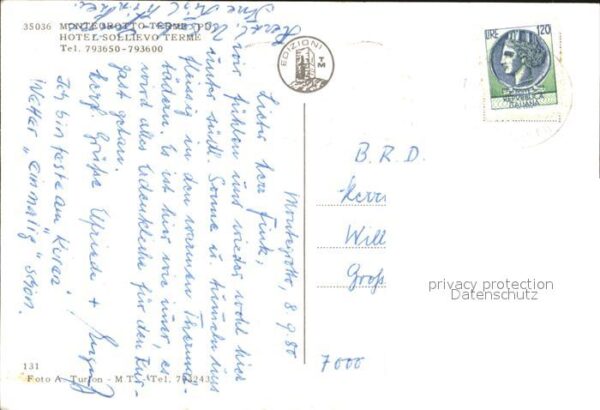 35036 MONTEGROTTO TERME (PD)
HOTEL SOLLIEVO TERME
Tel. 793650 - 793600
EDIZIONI
TM
LIRE 120
REPUBBLICA
ITALIANA
Montegrotto, 8.9.80
Lieber Herr Fink,
wir fühlen uns wieder wohl hier
unter südl. Sonne u. tummeln uns
fleissig in den warmen Thermal-
bädern. Es ist hier wie immer, es
wird alles Erdenkliche für den Kur-
gast getan.
Herzl. Grüße Elfriede +
Ich bin feste am "Kuren"
Wetter "einmalig" schön.
B. R. D.
Herrn
Will
Groß
7000
privacy protection
Datenschutz
131
Foto A. Turlon - M.T. - Tel. 793243